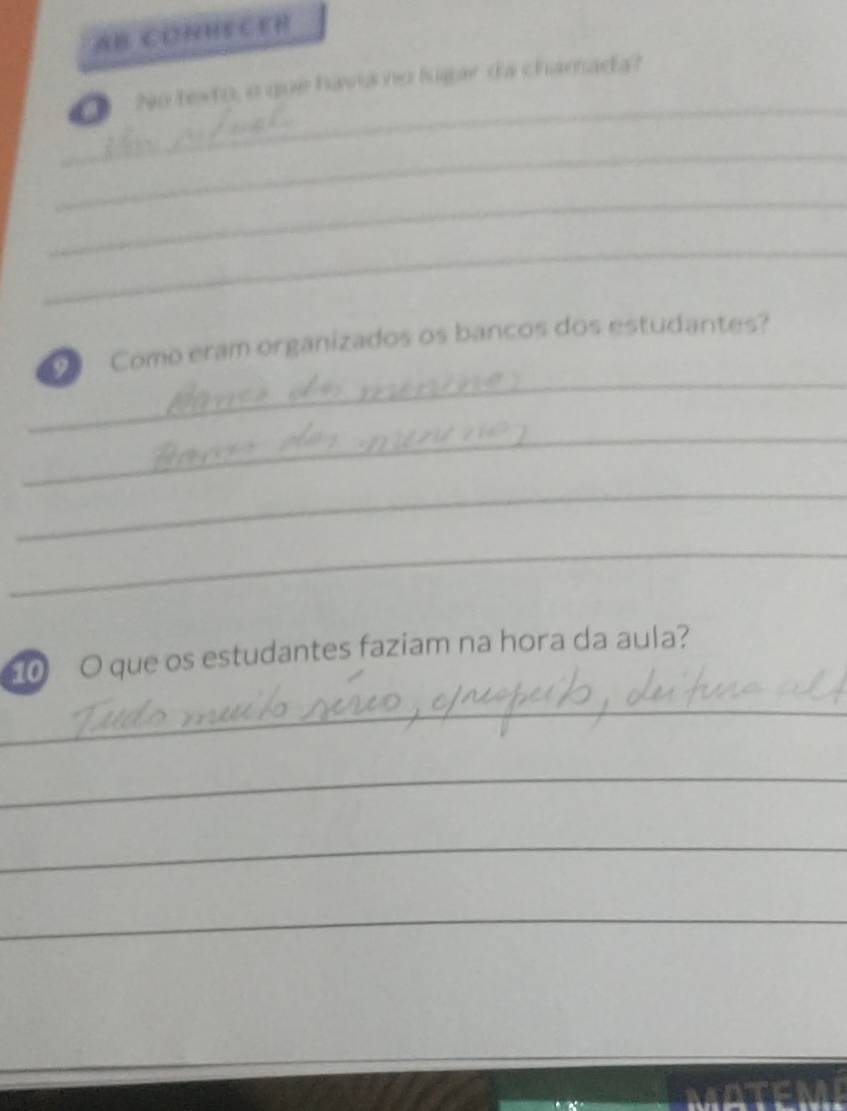 AB CONHECER
8 No texto, o que havia no lugar da chamada?
9 Como eram organizados os bancos dos estudantes?
Banco dos meninos
Banco dos meninos
10 O que os estudantes faziam na hora da aula?
Tudo muito sério, c/respeito, leitura alt
MATEM